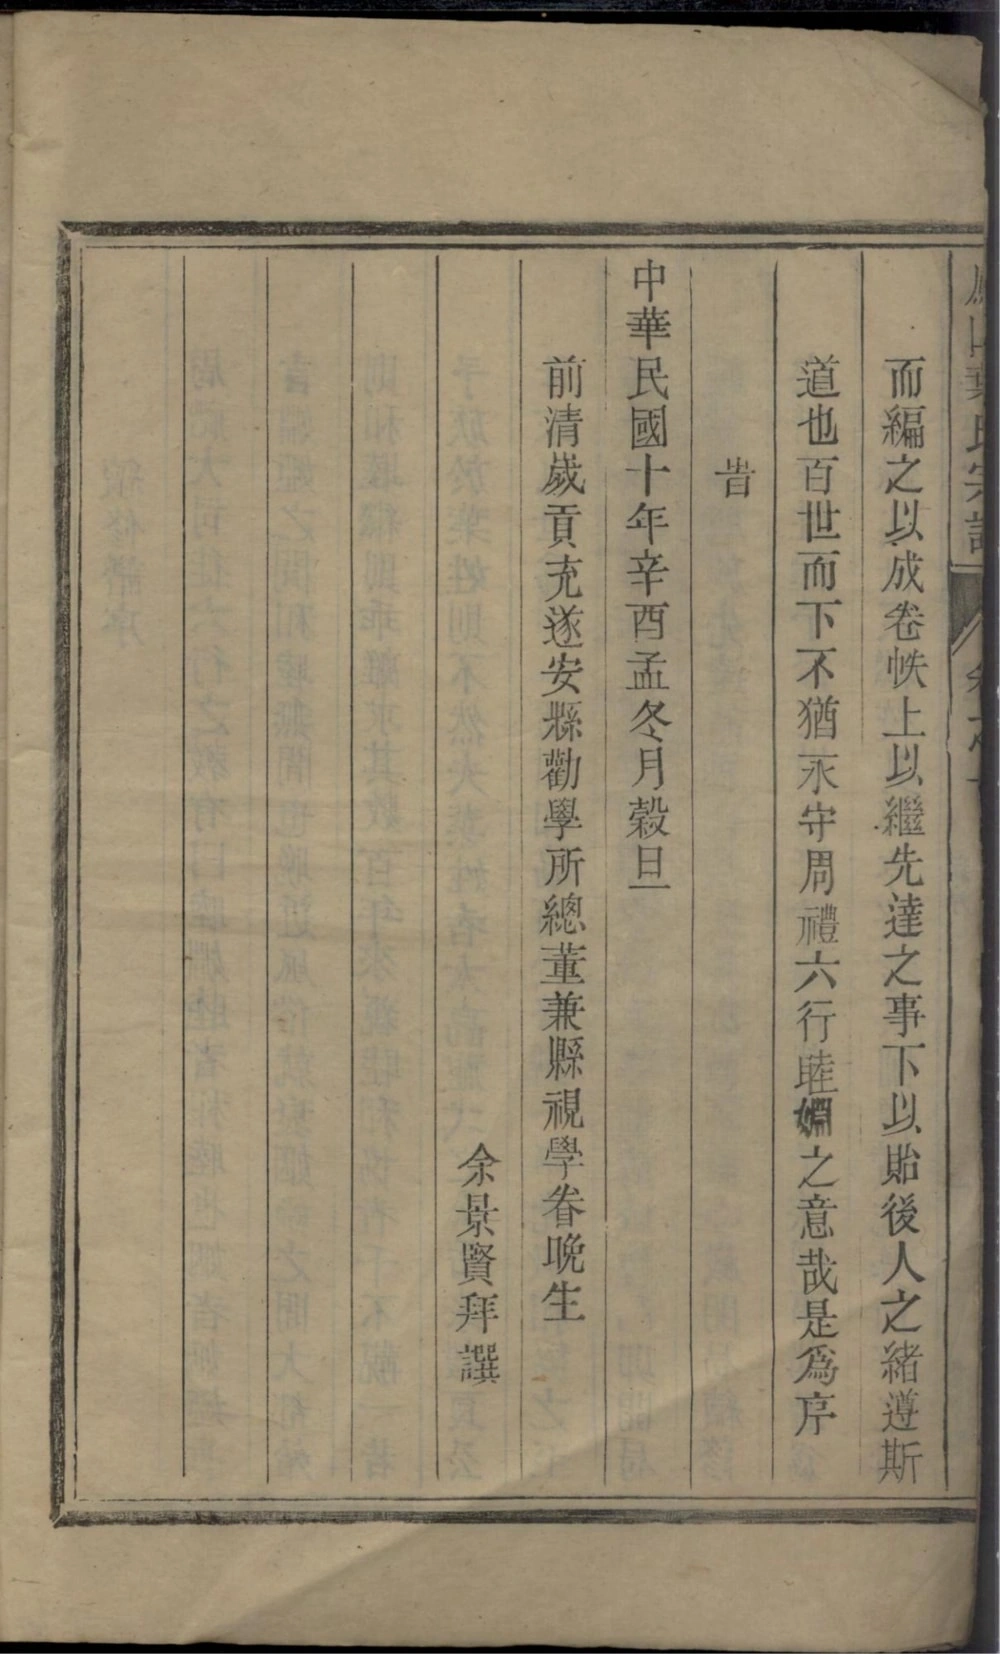 葉氏宗譜
而編之以成卷帙上以繼先達之事下以貽後人之緒遵斯
道也百世而下不猶永守周禮六行睦婣之意哉是為序
旹
中華民國十年辛酉孟冬月穀旦
前清歲貢充遂安縣勸學所總董兼縣視學眷晚生
余景賢拜譔